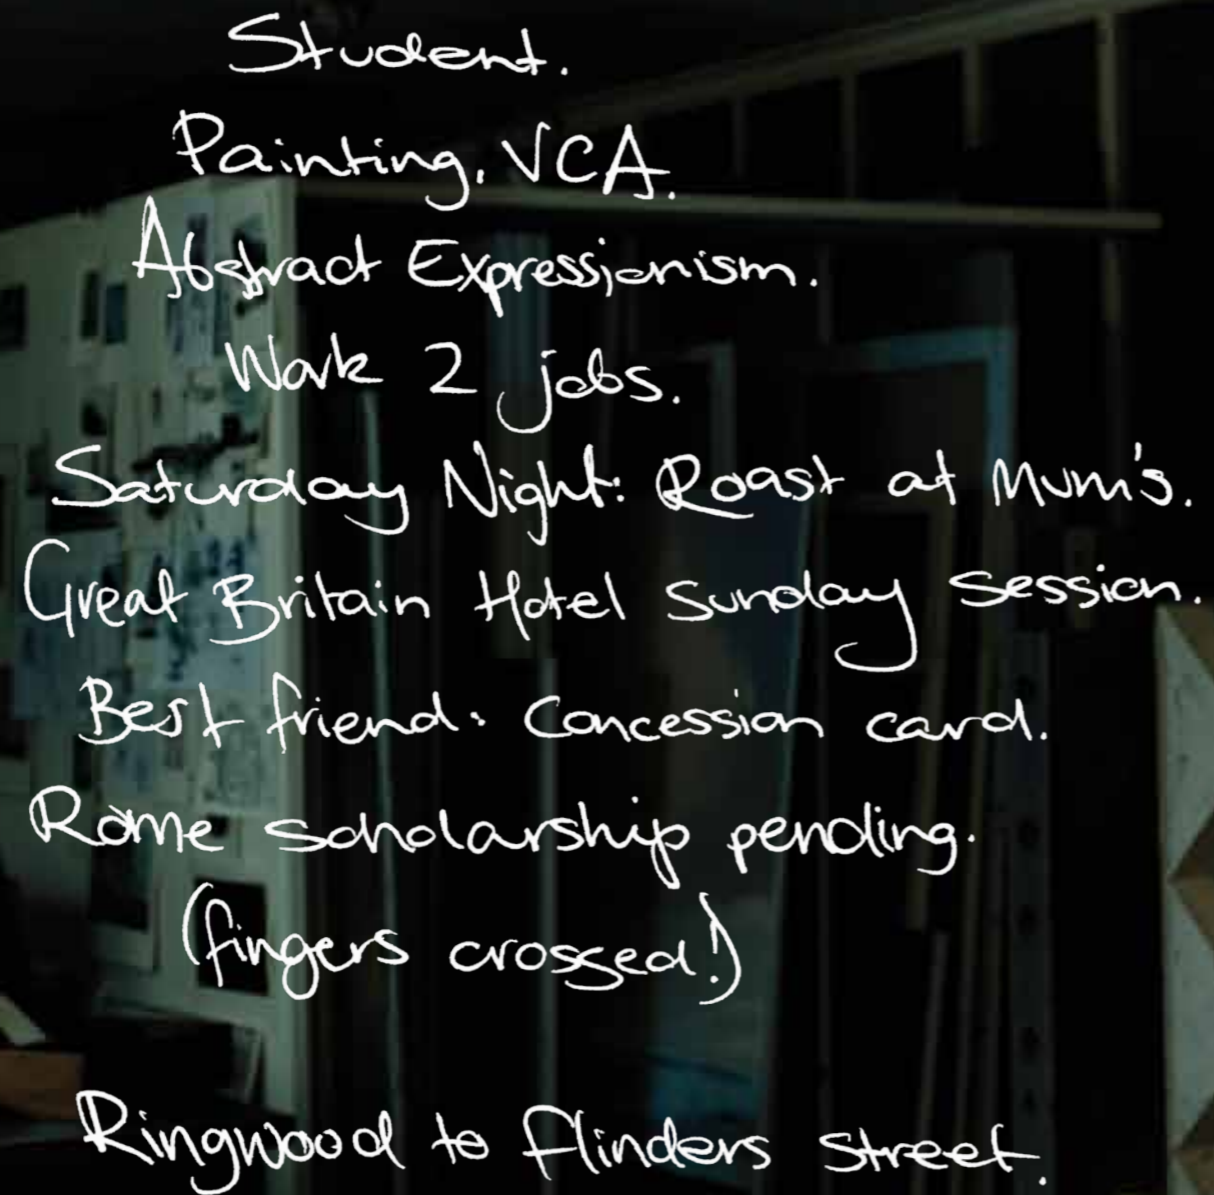 Student.
Painting. VCA.
Abstract Expressionism.
Work 2 jobs.
Saturday Night: Roast at Mum's.
Great Britain Hotel Sunday Session.
Best friend: Concession card.
Rome scholarship pending.
(fingers crossed!)
Ringwood to Flinders Street.